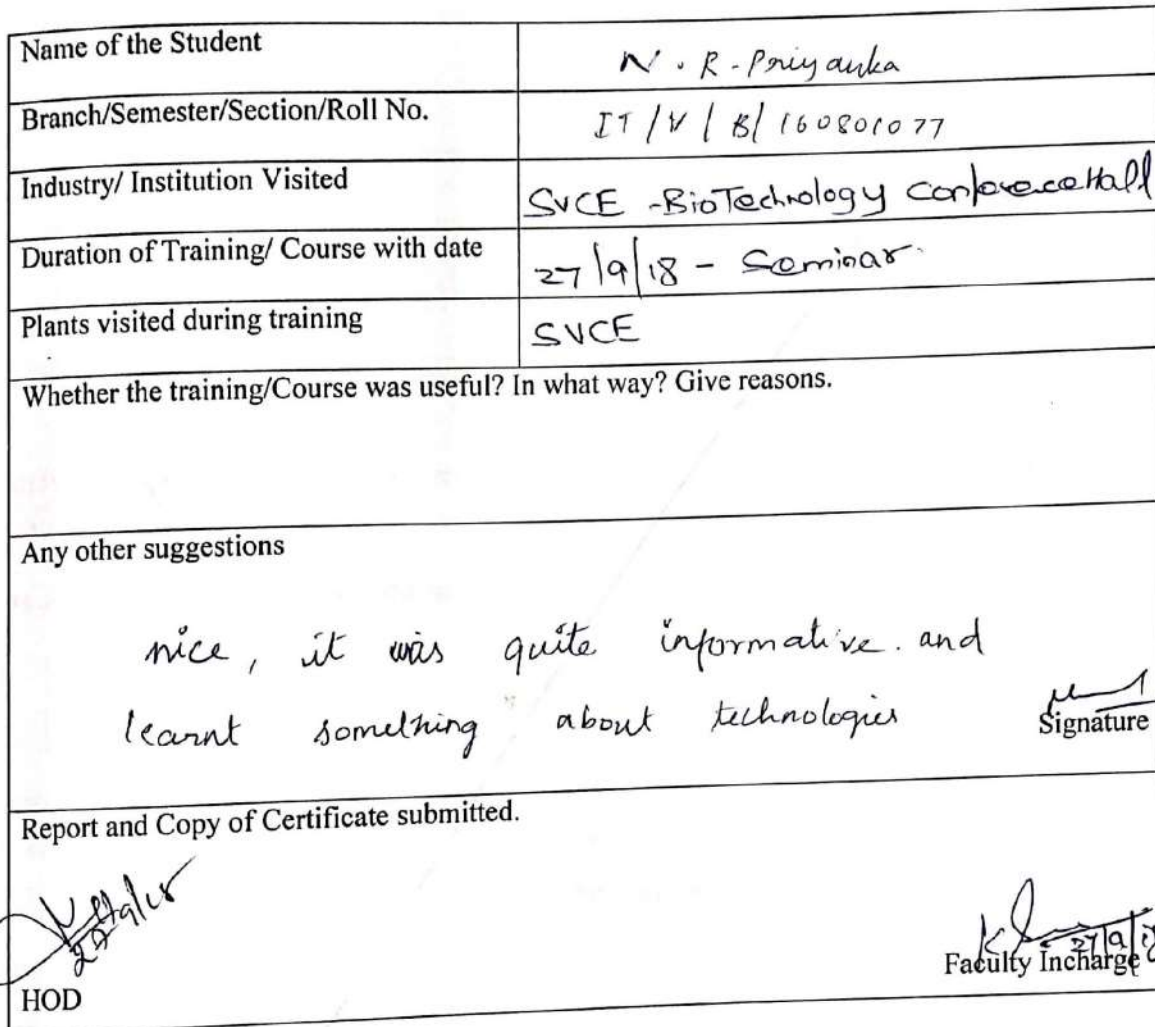 Name of the Student N. R. Priyanka
Branch/Semester/Section/Roll No. IT / V / B / 160801077
Industry/ Institution Visited SVCE - BioTechnology Conference Hall
Duration of Training/ Course with date 27/9/18 - Seminar.
Plants visited during training SVCE
Whether the training/Course was useful? In what way? Give reasons.
Any other suggestions
nice, it was quite informative. and
learnt something about technologies
Signature
Report and Copy of Certificate submitted.
27/9/18
Faculty Incharge
HOD